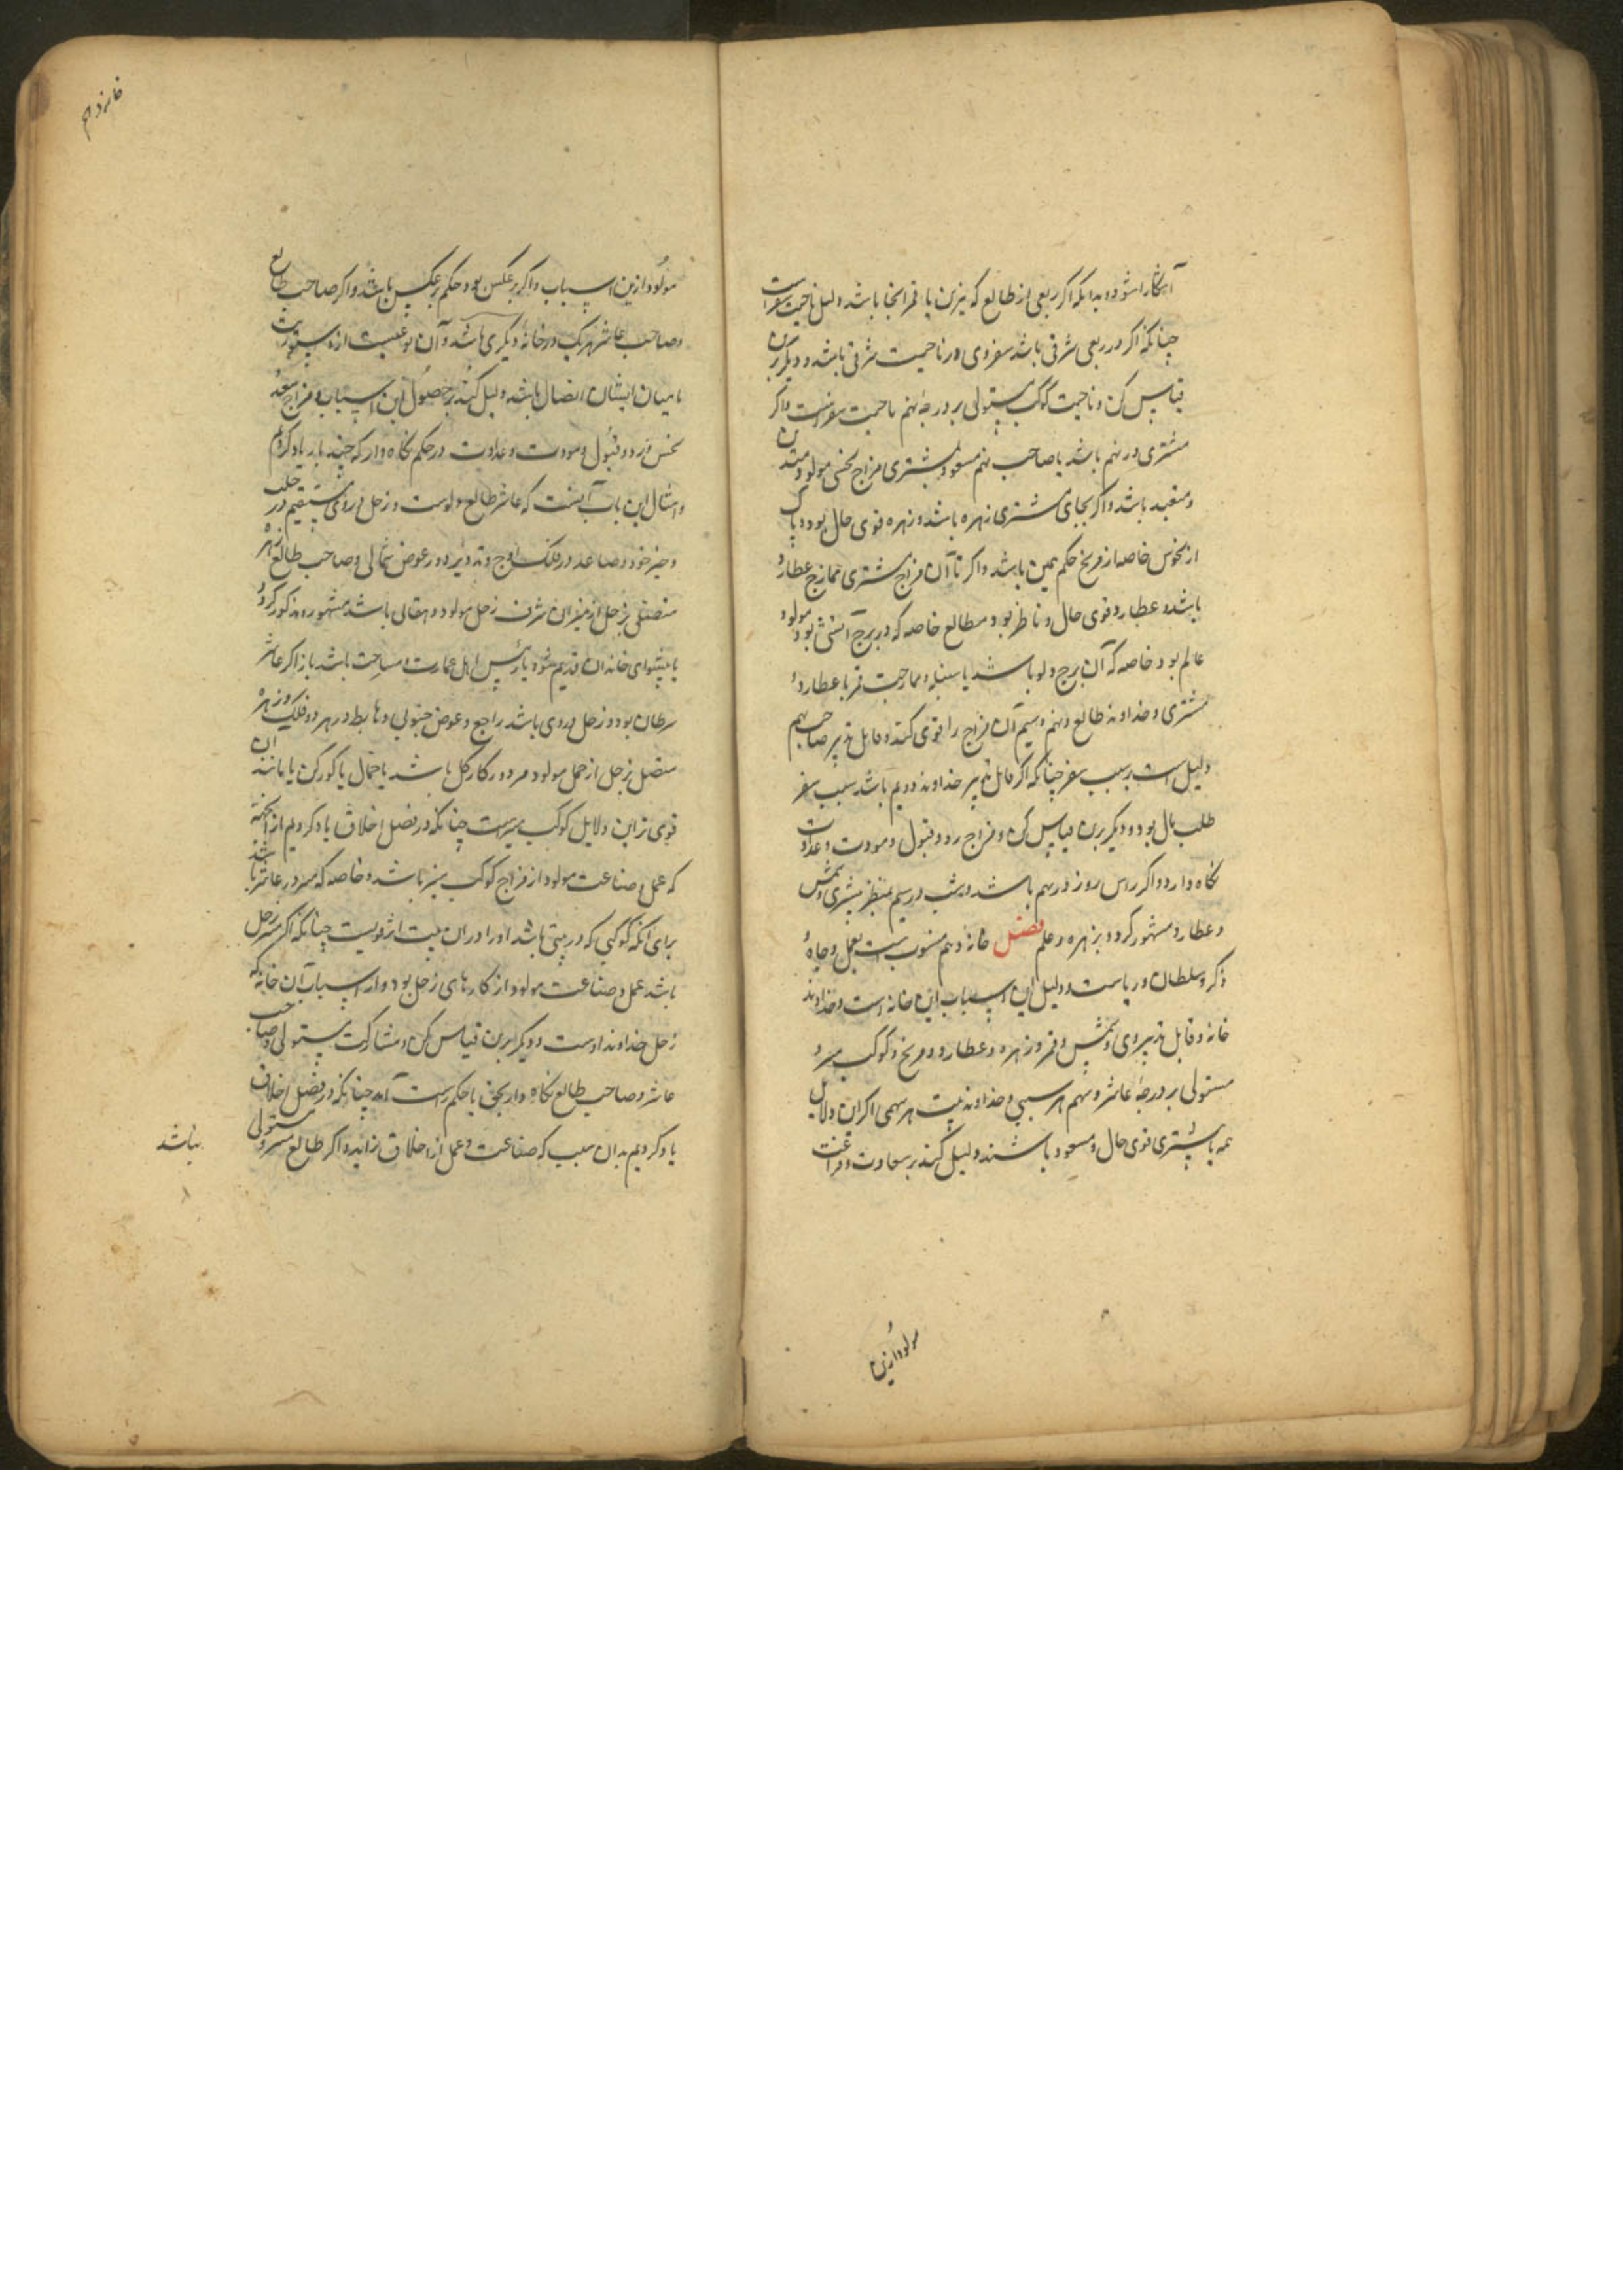 آشکارا شود و بدانکه اکر ربعی از طالع که نیرین یا قمر انجا باشد دلیل ناحیت سفر است
چنانکه اکر در ربعی شرقی باشد سفر وی در ناحیت شرقی باشد و دیکر برین
قیاس کن و ناحیت کوکب مستولی بر درجهٔ نهم ناحیت سفر است و اکر
مشتری در نهم باشد یا صاحب نهم مسعود بمشتری مزاج بخشی مولود متدین
و متعبد باشد و اکر بجای مشتری زهره باشد و زهره قوی حال بود و پاک
از نحوس خاصه از مریخ حکم همین باشد و اکر با آن مزاج مشتری ممازج عطارد
باشد و عطارد قوی حال و ناظر بود بطالع خاصه که در برج آتشی بود مولود
عالم بود خاصه که آن برج دلو باشد یا سنبله و ممازجت قمر با عطارد و
مشتری و خداوند طالع و نهم و سیم آن مزاج را قوی کند و قابل تدبیر صاحب نهم
دلیل است بر سبب سفر چنانکه اکر قابل تدبیر خداوند دویم باشد سبب سفر
طلب مال بود و دیکر برین قیاس کن و مزاج رد و قبول و مودت و عداوت
نکاه دارد و اکر راس روز در نهم باشد و بشب در سیم بنظر مشتری و شمس
و عطارد مشهور کردد بزهد و علم فصل خانهٔ دهم منسوب است بعمل و جاه و
ذکر و سلطان و ریاست و دلیل این اسباب این خانه است و خداوند
خانه و قابل تدبیر وی و شمس و قمر و زهره و عطارد و مریخ و کوکب مبز و
مستولی بر درجهٔ عاشر و سهم هر سببی و خداوند بیت هر سهمی اکر این دلایل
همه یا بیشتری قوی حال و مسعود باشند دلیل کند بر سعادت و فراغت
مولود ازین
خانهٔ دهم
مولود ازین اسباب و اکر بر عکس بود حکم بر عکس باشد و اکر صاحب طالع
و صاحب عاشر هر یک در خانهٔ دیکری باشد و آن نوعیست از دستوریت
یا میان ایشان اتصال باشد دلیل کند بر حصول این اسباب و مزاج سعد و
نحس و رد و قبول و مودت و عداوت در حکم نکاه دار که چند بار یاد کردم
و مثال این باب آنست که عاشر طالع دلو است و زحل در وی مستقیم در حلب
و حیز خود و صاعد در فلک اوج و تدویر و در عرض شمالی و صاحب طالع زهره
متصل بزحل از میزان شرف زحل مولود دهقانی باشد مشهور و مذکور کردد
یا پیشوای خاندان قدیم شود یا رئیس اهل عمارت و مساحت باشد باز اکر عاشر
سرطان بود و زحل در وی باشد راجع و عرض جنوبی و هابط در هر دو فلک و زهره
متصل بزحل از حمل مولود مزدور کار کل باشد یا حمال یا کورکن یا مانند ان
قوی تر این دلایل کوکب مبز است چنانکه در فصل اخلاق یاد کردیم از بهر آنکه
که عمل و صناعت مولود از مزاج کوکب مبز باشد و خاصه که مبز در عاشر باشد
برای آنکه کوکبی که در بیتی باشد او را در ان بیت اثر قویست چنانکه اکر مبز زحل
باشد عمل و صناعت مولود از کارهای زحل بود و از اسباب آن خانه که
زحل خداوند اوست و دیکرا برین قیاس کن و مشارکت مستولی و صاحب
عاشر و صاحب طالع نکاه دار بحق تا حکم راست آید چنانکه در فصل اخلاق
یاد کردیم بدان سبب که صناعت و عمل از اخلاق زاید و اکر طالع مبز و مستولی
نباشد